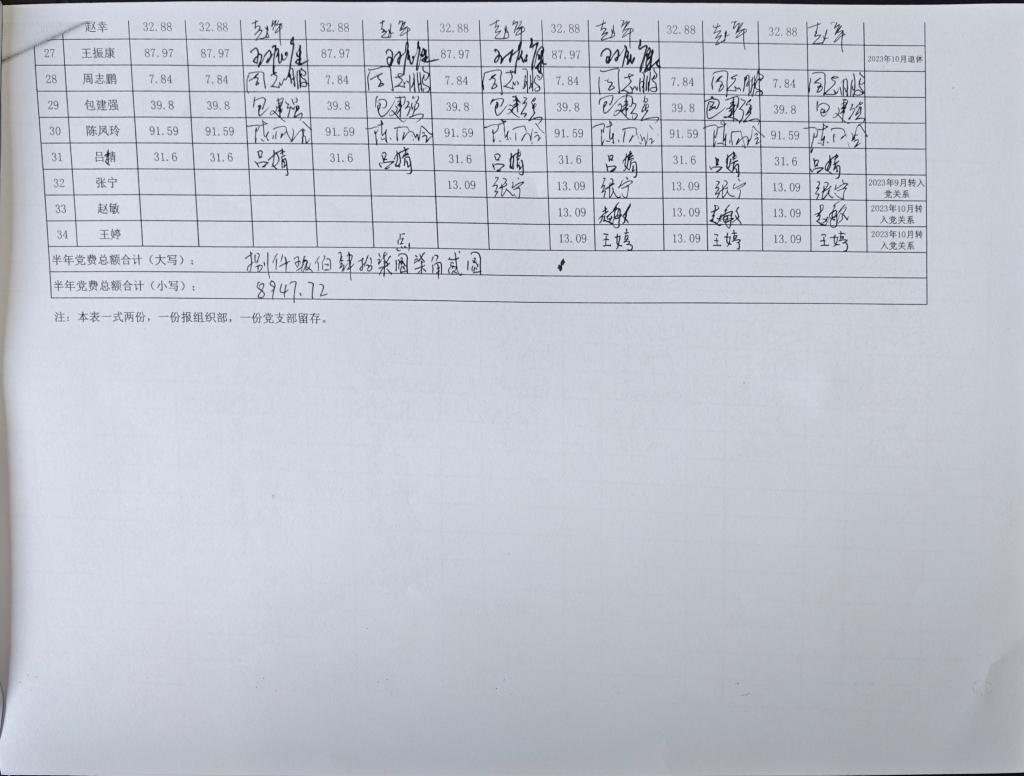 赵幸 32.88 32.88 赵幸 32.88 赵幸 32.88 赵幸 32.88 赵幸 32.88 赵幸 32.88 赵幸
27 王振康 87.97 87.97 王振康 87.97 王振康 87.97 王振康 87.97 王振康 2023年10月退休
28 周志鹏 7.84 7.84 周志鹏 7.84 周志鹏 7.84 周志鹏 7.84 周志鹏 7.84 周志鹏 7.84 周志鹏
29 包建强 39.8 39.8 包建强 39.8 包建强 39.8 包建强 39.8 包建强 39.8 包建强 39.8 包建强
30 陈凤玲 91.59 91.59 陈凤玲 91.59 陈凤玲 91.59 陈凤玲 91.59 陈凤玲 91.59 陈凤玲 91.59 陈凤玲
31 吕婧 31.6 31.6 吕婧 31.6 吕婧 31.6 吕婧 31.6 吕婧 31.6 吕婧 31.6 吕婧
32 张宁 13.09 张宁 13.09 张宁 13.09 张宁 13.09 张宁 2023年9月转入党关系
33 赵敏 13.09 赵敏 13.09 赵敏 13.09 赵敏 2023年10月转入党关系
34 王婷 13.09 王婷 13.09 王婷 13.09 王婷 2023年10月转入党关系
半年党费总额合计（大写）： 捌仟玖佰肆拾柒圆点柒角贰圆
半年党费总额合计（小写）： 8947.72
注：本表一式两份，一份报组织部，一份党支部留存。